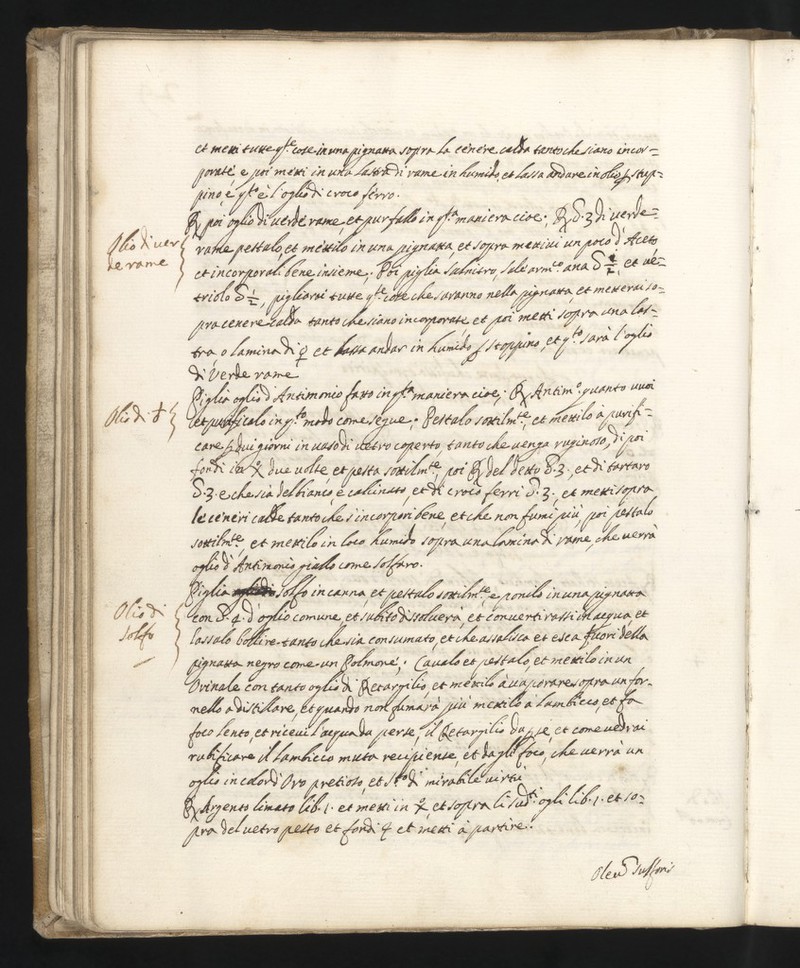 et metti tutte q.te cose in una pignatta sopra la cenere calda tanto che siano incor=
porate e poi metti in una lastra di rame in humido, et lassa andare in olio p stup=
pino e q.to è l'oglio di croco ferro.
Olio di ver
de rame
℞ poi oglio di verde rame, et pur fallo in q.sta maniera cioe; ℞ ℥.3 di verde=
rame pestalo, et mettilo in una pignatta et sopra mettivi un poco d'Aceto
et incorporal bene insieme; Poi piglia salnitro, sale arm.co ana ℥ ½, et ve=
triolo ℥ ½, pigliarai tutte q.te cose che saranno nella pignatta, et metterai so=
pra cenere calda tanto che siano incorporate et poi metti sopra una las=
tra o lamina di ♀ et lassa andar in humido p stoppino, et q.to sarà l'oglio
di Verde rame
Olio di ♁
Piglia oglio d'Antimonio fatto in q.sta maniera cioe; ℞ Antim.o quanto vuoi
et purificalo in q.to modo come segue; Pestalo sottilm.te, et mettilo à purifi=
care p dui giorni in vaso di vetro coperto, tanto che venga ruginoso, di poi
fondi in due volte, et pesta sottilm.te, poi ℞ del detto ℥.3., et di tartaro
℥.3. e che sia del bianco, e calcinato, et di croco ferri ℥.3., et metti sopra
le ceneri calde tanto che s'incorpori bene, et che non fumi più, poi pestalo
sottilm.te, et mettilo in loco humido sopra una lamina di rame, che verrà
oglio d'Antimonio giallo come solfaro.
Olio di
solfo
Piglia solfo in canna, et pestalo sottilm.te e ponilo in una pignatta
con ℥.4. d'oglio comune, et subito dissolverà, et convertirassi in acqua, et
lassalo bollire tanto che sia consumato, et che assalisca et esca fuori della
pignatta negro come un Polmone; Cavalo et pestalo, et mettilo in un
Orinale con tanto oglio di Retargilio, et mettilo à vaporare sopra un for=
nello a distillare, et quando non fumarà più mettilo a lambicco, et fa
foco lento, et ricevi l'acqua da perse, il Retargilio da se, et come vedrai
rubificare il lambicco muta recipiente, et dagli foco, che verrà un
oglio in color d'Oro pretioso, et di mirabile virtù
℞ Argento limato lib.1. et metti in et sopra li sud.ti ogli lib.1. et so=
pra del vetro pesto et fondi et metti à partire.
Oleu sulfuris